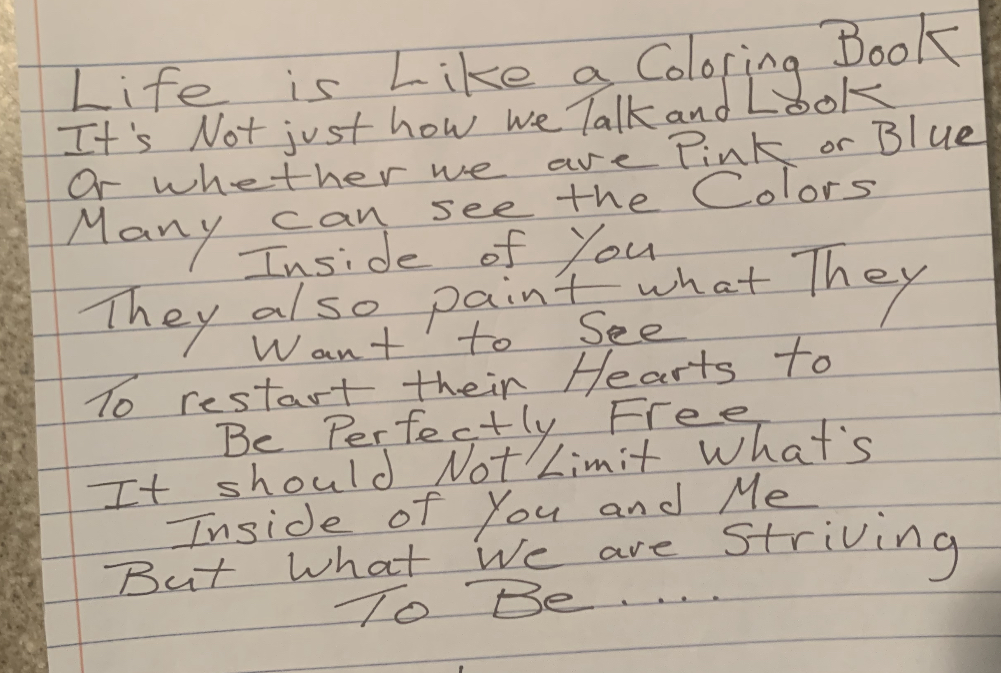 Life is Like a Coloring Book
It's Not just how we Talk and Look
Or whether we are Pink or Blue
Many can see the Colors
Inside of You
They also paint what They
Want to See
To restart their Hearts to
Be Perfectly Free
It should Not Limit What's
Inside of You and Me
But What We are Striving
To Be.....